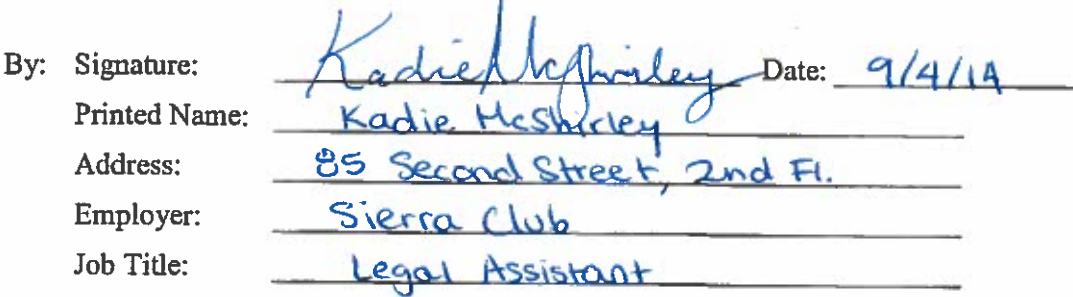 By: Signature: Kadie McShirley Date: 9/4/14
Printed Name: Kadie McShirley
Address: 85 Second Street, 2nd Fl.
Employer: Sierra Club
Job Title: Legal Assistant